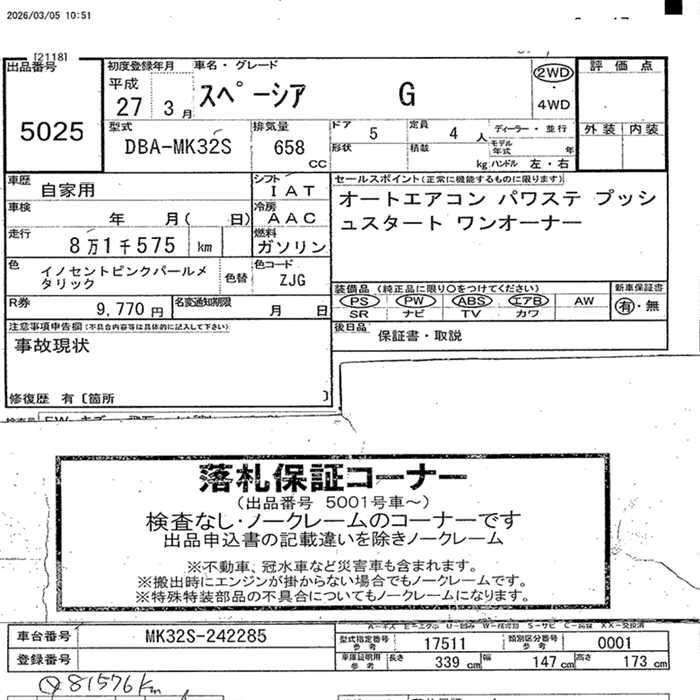 2026/03/05 10:51
[2118]
出品番号
5025
初度登録年月
平成
27 3月
車名・グレード
スペーシア G
2WD
・
4WD
評価点
外装 内装
型式
DBA-MK32S
排気量
658
CC
ドア 5
定員 4 人
ディーラー・並行
形状
積載
kg
モデル年式 年
ハンドル 左・右
車歴
自家用
シフト
IAT
車検
年 月( 日)
冷房
AAC
走行
8万1千575 km
燃料
ガソリン
色
イノセントピンクパールメタリック
色替
色コード
ZJG
R券
9,770円
名変通知期限
月 日
セールスポイント(正常に機能するものに限ります)
オートエアコン パワステ プッシ
ュスタート ワンオーナー
装備品 (純正品に限り〇をつけてください)
PS PW ABS エアB AW
SR ナビ TV カワ
新車保証書
有・無
後日品
保証書・取説
注意事項申告欄(不具合内容等は具体的に記入して下さい)
事故現状
修復歴 有〔箇所 〕
落札保証コーナー
(出品番号 5001号車～)
検査なし・ノークレームのコーナーです
出品申込書の記載違いを除きノークレーム
※不動車、冠水車など災害車も含まれます。
※搬出時にエンジンが掛からない場合でもノークレームです。
※特殊特装部品の不具合についてもノークレームになります。
車台番号
MK32S-242285
登録番号
型式指定番号
参考
17511
類別区分番号
参考
0001
車庫証明用
参考
長さ 339 cm
幅 147 cm
高さ 173 cm
81576km